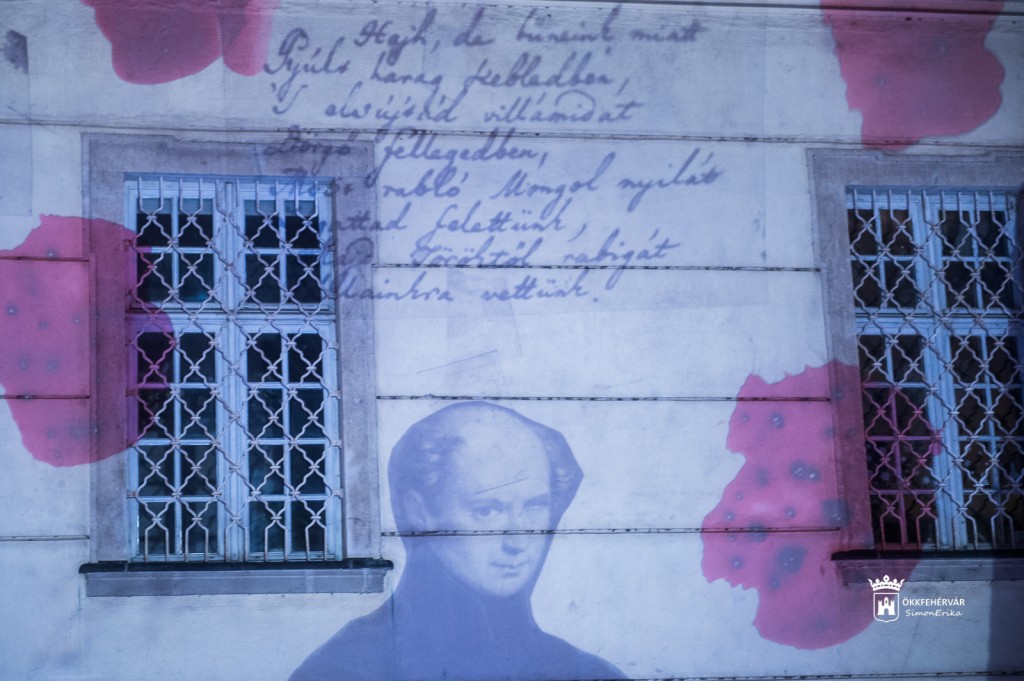 Hajh, de bűneink miatt
Gyúlt harag kebledben,
S elsújtád villámidat
Dörgő fellegedben,
rabló Mongol nyilát
felettünk,
Töröktől rabigát
vállainkra vettünk.
ÖKKFEHÉRVÁR
SimonErika